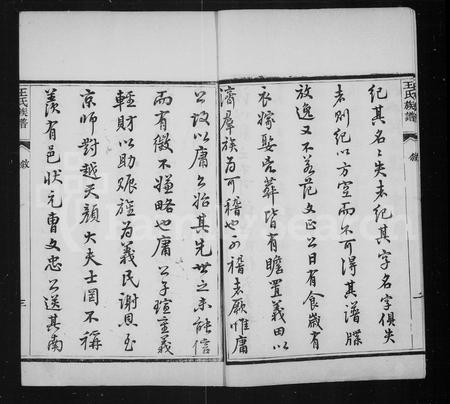 王氏族譜
敘
二
紀其名名失者紀其字名字俱失
者則紀以方空而不可得其譜牒
放逸又不若范文正公日有食歲有
衣嫁娶喪葬皆有贍置義田以
濟羣族為可稽也可稽者厥惟庸
公故以庸公始其先世之未能信
而有徵不嫌略也庸公子瑄重義
輕財以助賑旌為義民謝恩至
京師對越天顏大夫士罔不稱
羨有邑狀元曹文忠公送其南
王氏族譜
敘
三